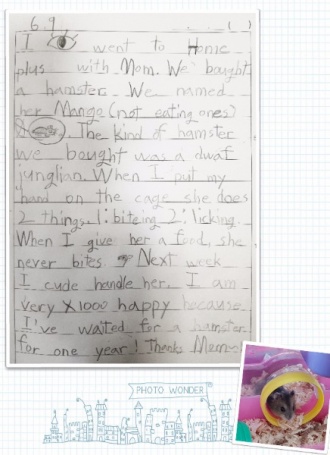 6.9 ( )
I went to Home
plus with Mom. We bought
a hamster. We named
her Mango (not eating ones)
. The kind of hamster
we bought was a dwaf
junglian. When I put my
hand on the cage she does
2 things. 1: biteing 2: licking.
When I give her a food, she
never bites. Next week
I cude handle her. I am
very X1000 happy because
I've waited for a hamster
for one year! Thanks Mom~
PHOTO WONDER